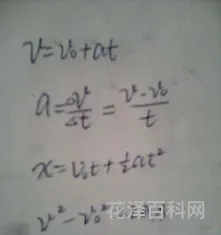 v=v₀+at
a=Δv/Δt=v-v₀/t
x=v₀t+½at²
v²-v₀²
花泽百科网